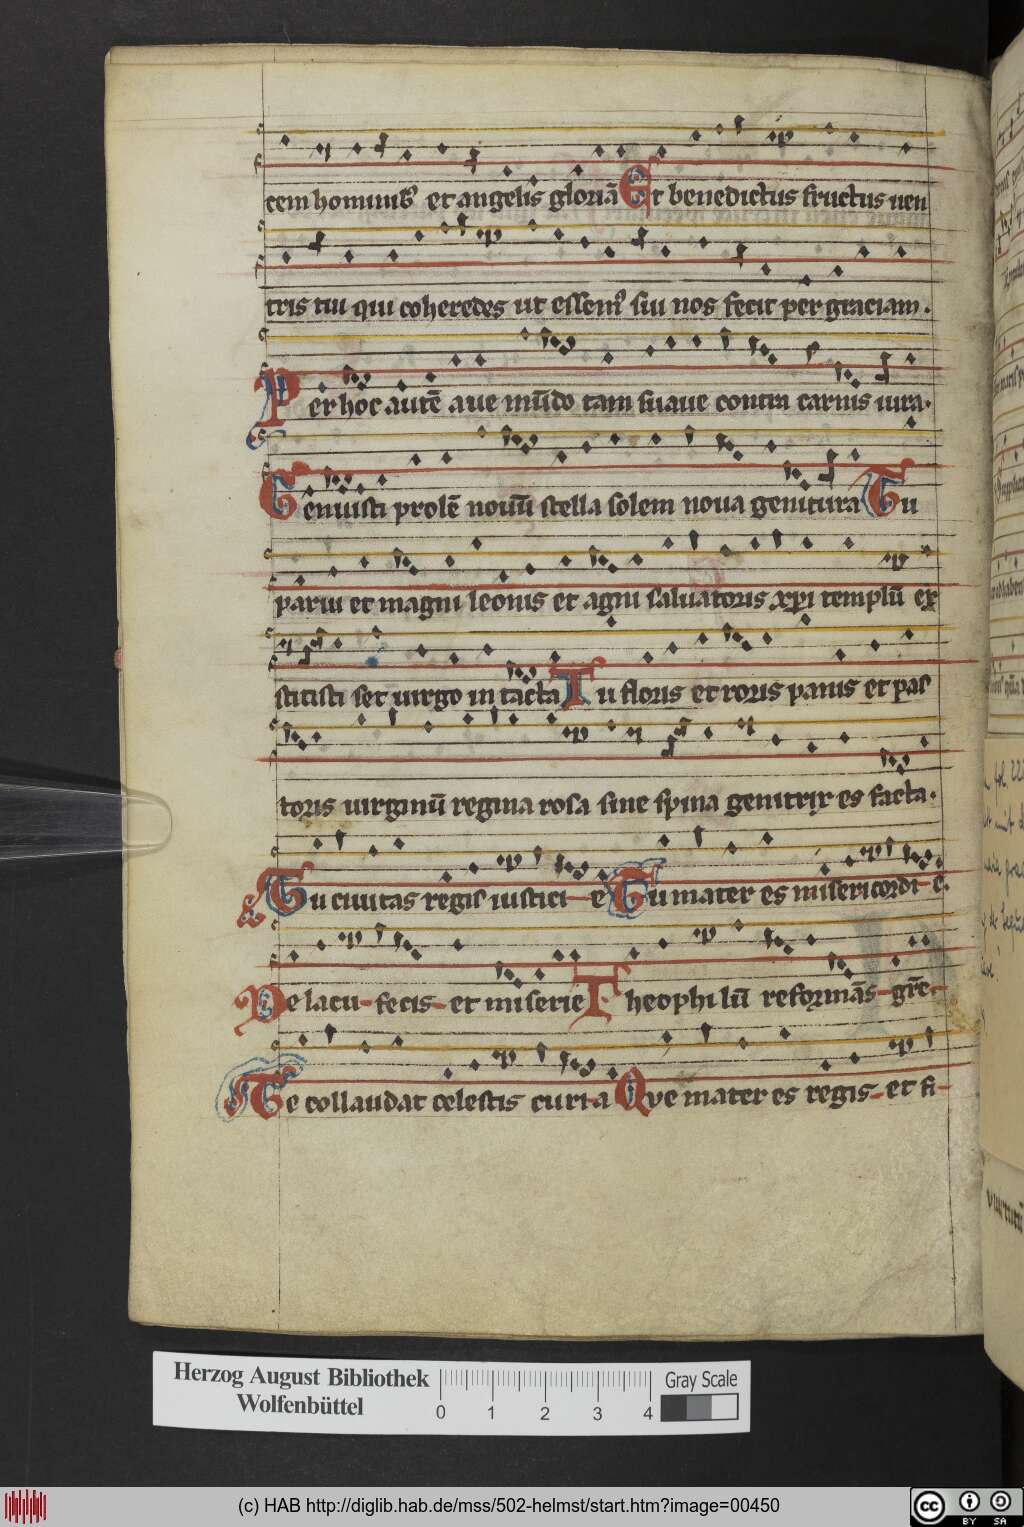 cem hominibꝰ et angelis gloriā Et benedictus fructus uen
tris tui qui coheredes ut essemꝰ sui nos fecit per graciam.
Per hoc autē aue mūdo tam suaue contra carnis iura.
Genuisti prolē nouū stella solem noua genitura Tu
parui et magni leonis et agni saluatoris xpi templū ex
stitisti set uirgo in tacta Tu floris et roris panis et pas
toris uirginū regina rosa sine spina genitrix es facta.
Tu ciuitas regis iustici e Tu mater es misericordi e.
De lacu fecis et miserie Theophilū reformās grē.
Te collaudat celestis curia Que mater es regis et fi
Herzog August Bibliothek
Wolfenbüttel
0 1 2 3 4
Gray Scale
(c) HAB http://diglib.hab.de/mss/502-helmst/start.htm?image=00450
cc BY SA